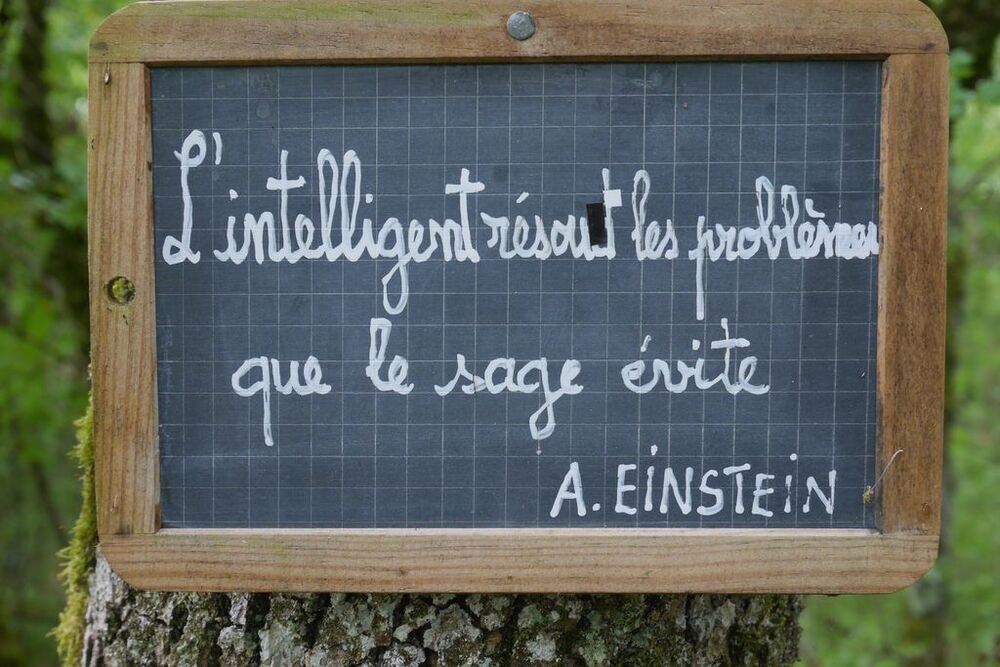 L'intelligent résout les problèmes
que le sage évite
A. EINSTEIN